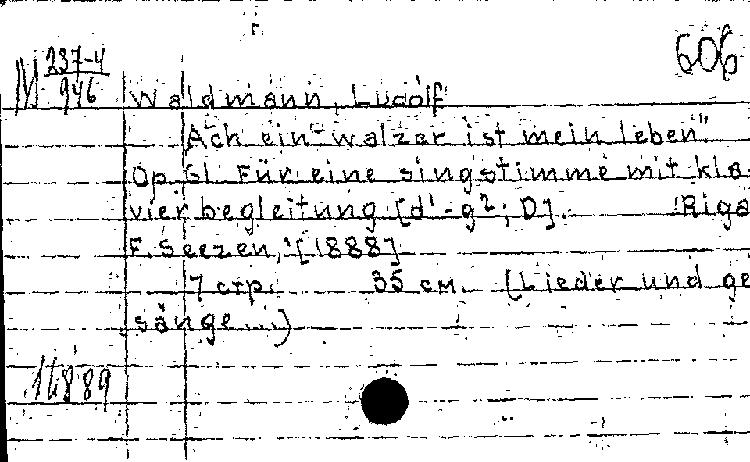 606
М 237-4
946
Waldmann, Ludolf
Ach ein walzer ist mein leben"
Op 61. Für eine singstimme mit kla-
vier begleitung [d'-g²; D]. Riga
F. Seezen, [1888]
7 стр. 35 см. (Lieder und ge
sänge...)
14889